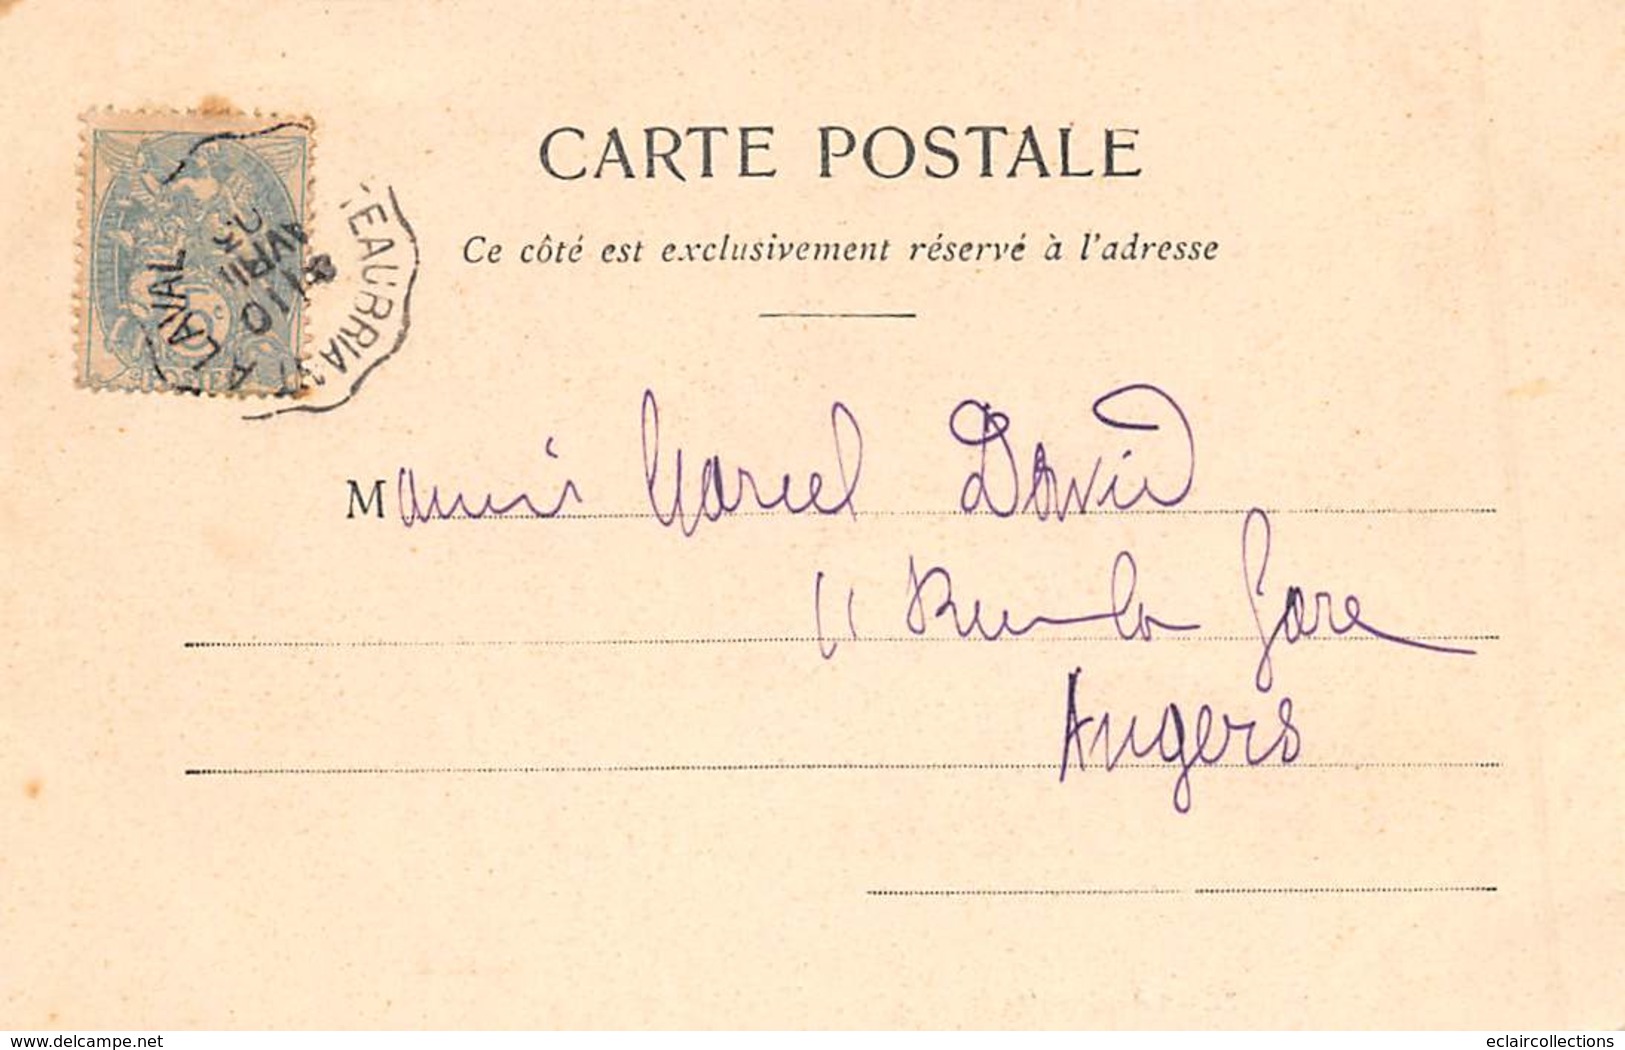 CARTE POSTALE
Ce côté est exclusivement réservé à l'adresse
EAUBRIANT A LAVAL
10
AVRIL
POSTES
Marcel David
11 Rue de la Gare
Angers
delcampe.net
eclaircollections